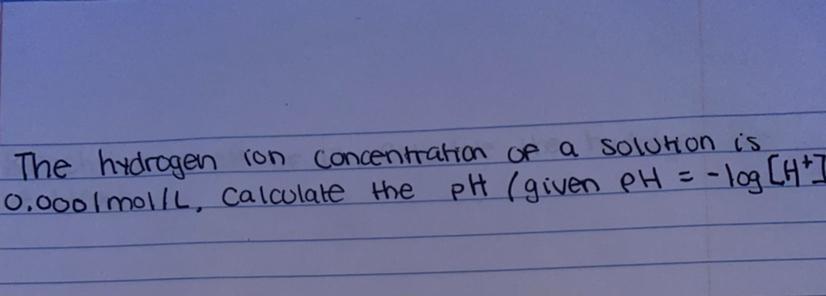 The hydrogen ion concentration of a solution is
0.0001mol/L, calculate the pH (given pH = -log[H⁺]